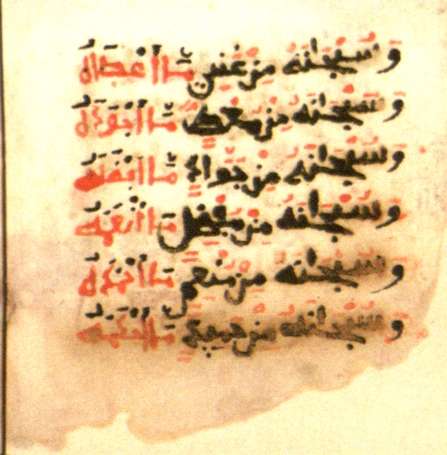 وسبحانه من غني ما أعطاه
وسبحانه من معط ما أجوده
وسبحانه من جواد ما أفضله
وسبحانه من مفضل ما أنعمه
وسبحانه من منعم
وسبحانه من